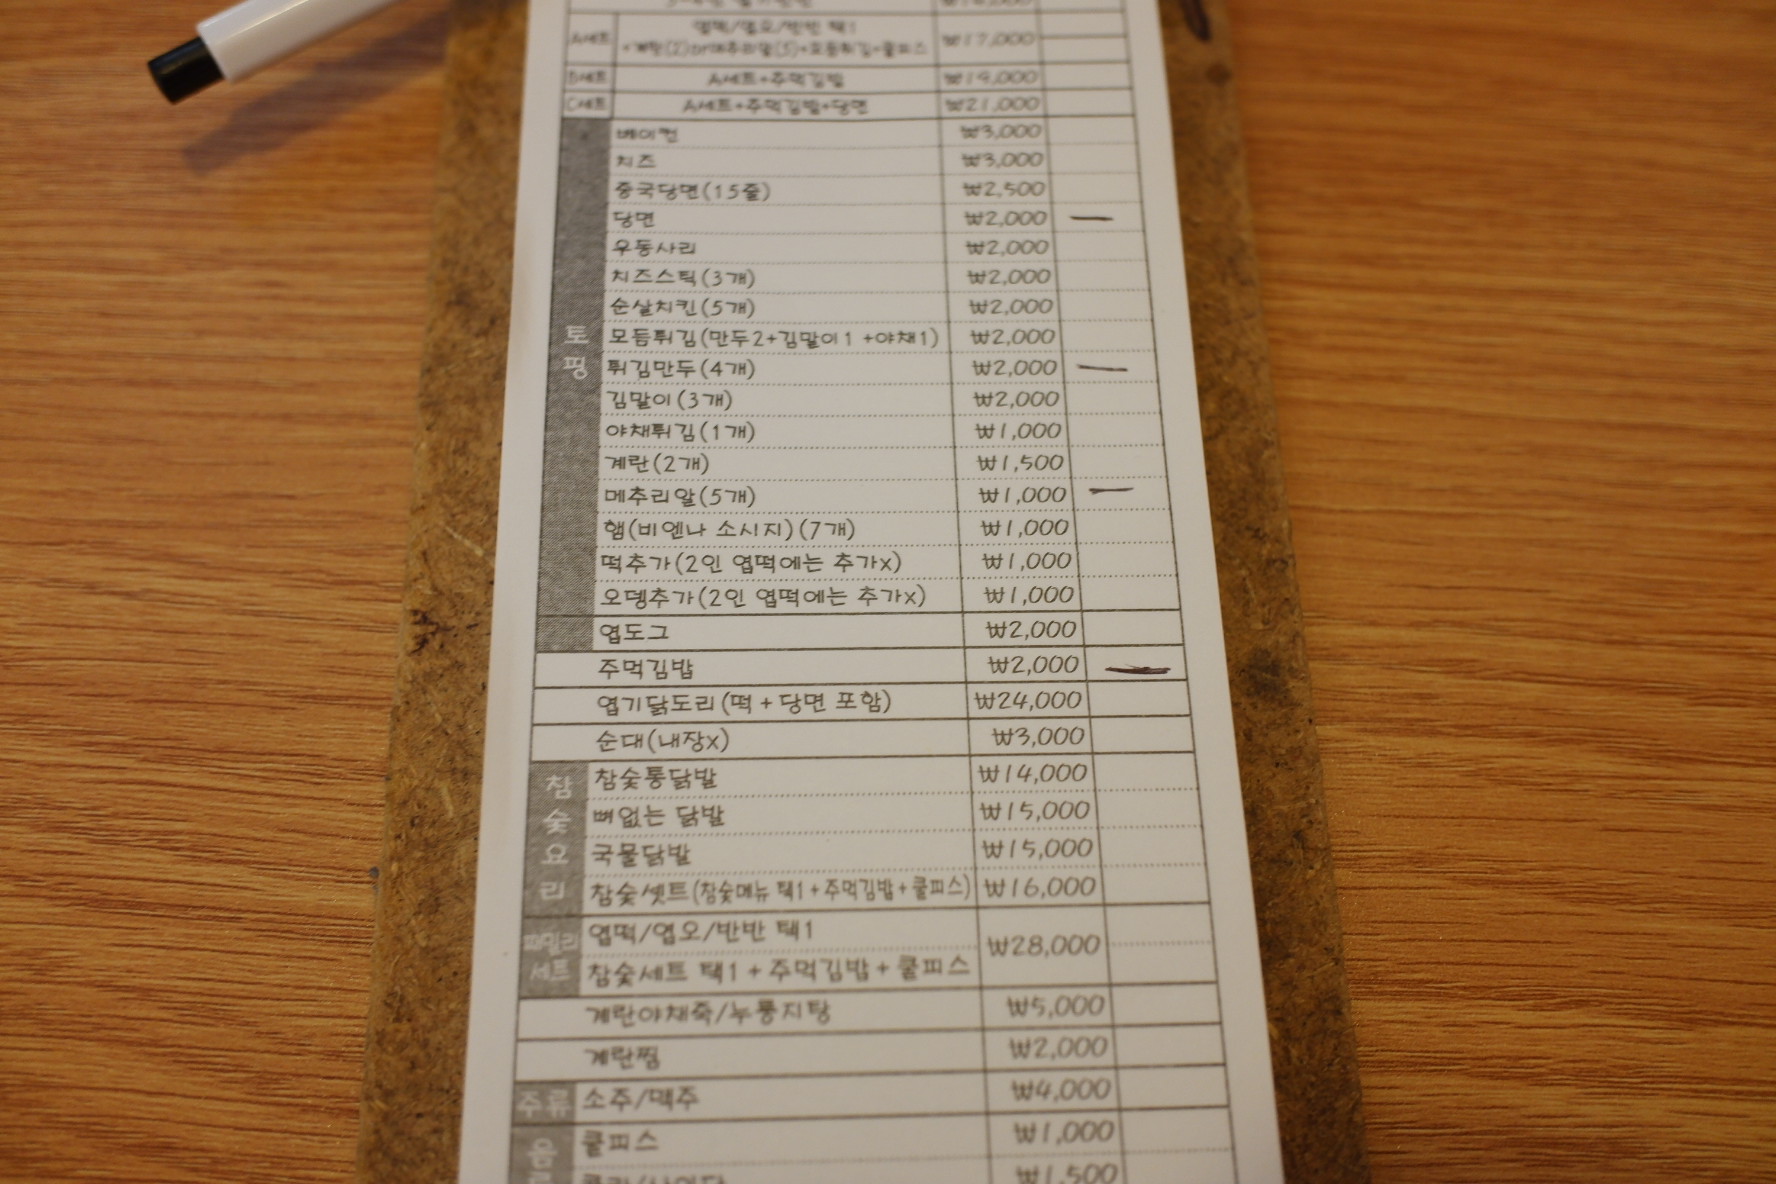 A세트 엽떡/엽오/반반 택1 ₩17,000
+계란(2)or메추리알(5)+모듬튀김+쿨피스
B세트 A세트+주먹김밥 ₩19,000
C세트 A세트+주먹김밥+당면 ₩21,000
토핑
베이컨 ₩3,000
치즈 ₩3,000
중국당면(15줄) ₩2,500
당면 ₩2,000
우동사리 ₩2,000
치즈스틱(3개) ₩2,000
순살치킨(5개) ₩2,000
모듬튀김(만두2+김말이1 +야채1) ₩2,000
튀김만두(4개) ₩2,000
김말이(3개) ₩2,000
야채튀김(1개) ₩1,000
계란(2개) ₩1,500
메추리알(5개) ₩1,000
햄(비엔나 소시지)(7개) ₩1,000
떡추가(2인 엽떡에는 추가x) ₩1,000
오뎅추가(2인 엽떡에는 추가x) ₩1,000
엽도그 ₩2,000
주먹김밥 ₩2,000
엽기닭도리(떡+당면 포함) ₩24,000
순대(내장x) ₩3,000
참숯요리
참숯통닭발 ₩14,000
뼈없는 닭발 ₩15,000
국물닭발 ₩15,000
참숯셋트(참숯메뉴 택1+주먹김밥+쿨피스) ₩16,000
패밀리세트
엽떡/엽오/반반 택1 ₩28,000
참숯세트 택1+주먹김밥+쿨피스
계란야채죽/누룽지탕 ₩5,000
계란찜 ₩2,000
주류 소주/맥주 ₩4,000
음
쿨피스 ₩1,000
₩1,500